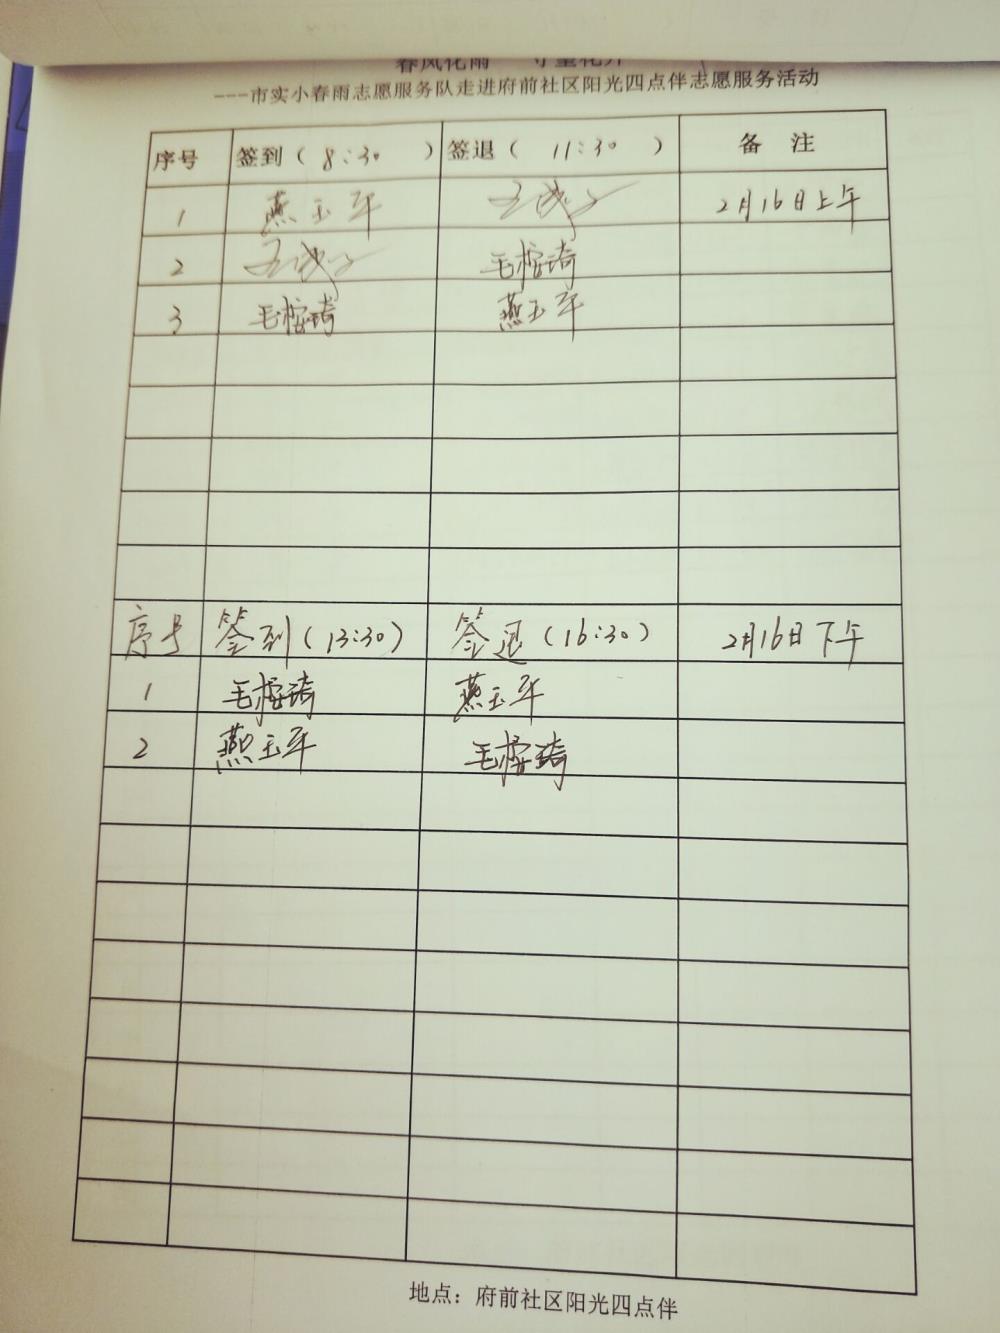 春风化雨 守望花开
---市实小春雨志愿服务队走进府前社区阳光四点伴志愿服务活动
序号 签到（ 8:30 ） 签退（ 11:30 ） 备 注
1 燕玉平 2月16日上午
2 毛榕琦
3 毛榕琦 燕玉平
序号 签到（13:30） 签退（16:30） 2月16日下午
1 毛榕琦 燕玉平
2 燕玉平 毛榕琦
地点：府前社区阳光四点伴